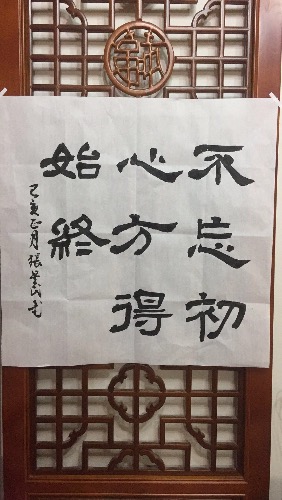 不忘初
心方得
始終
己亥正月張景山書